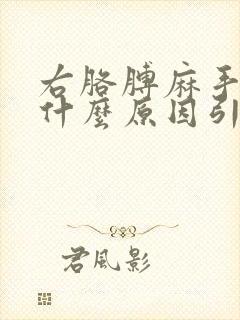 右胳膊麻手
什麼原因引
君風影